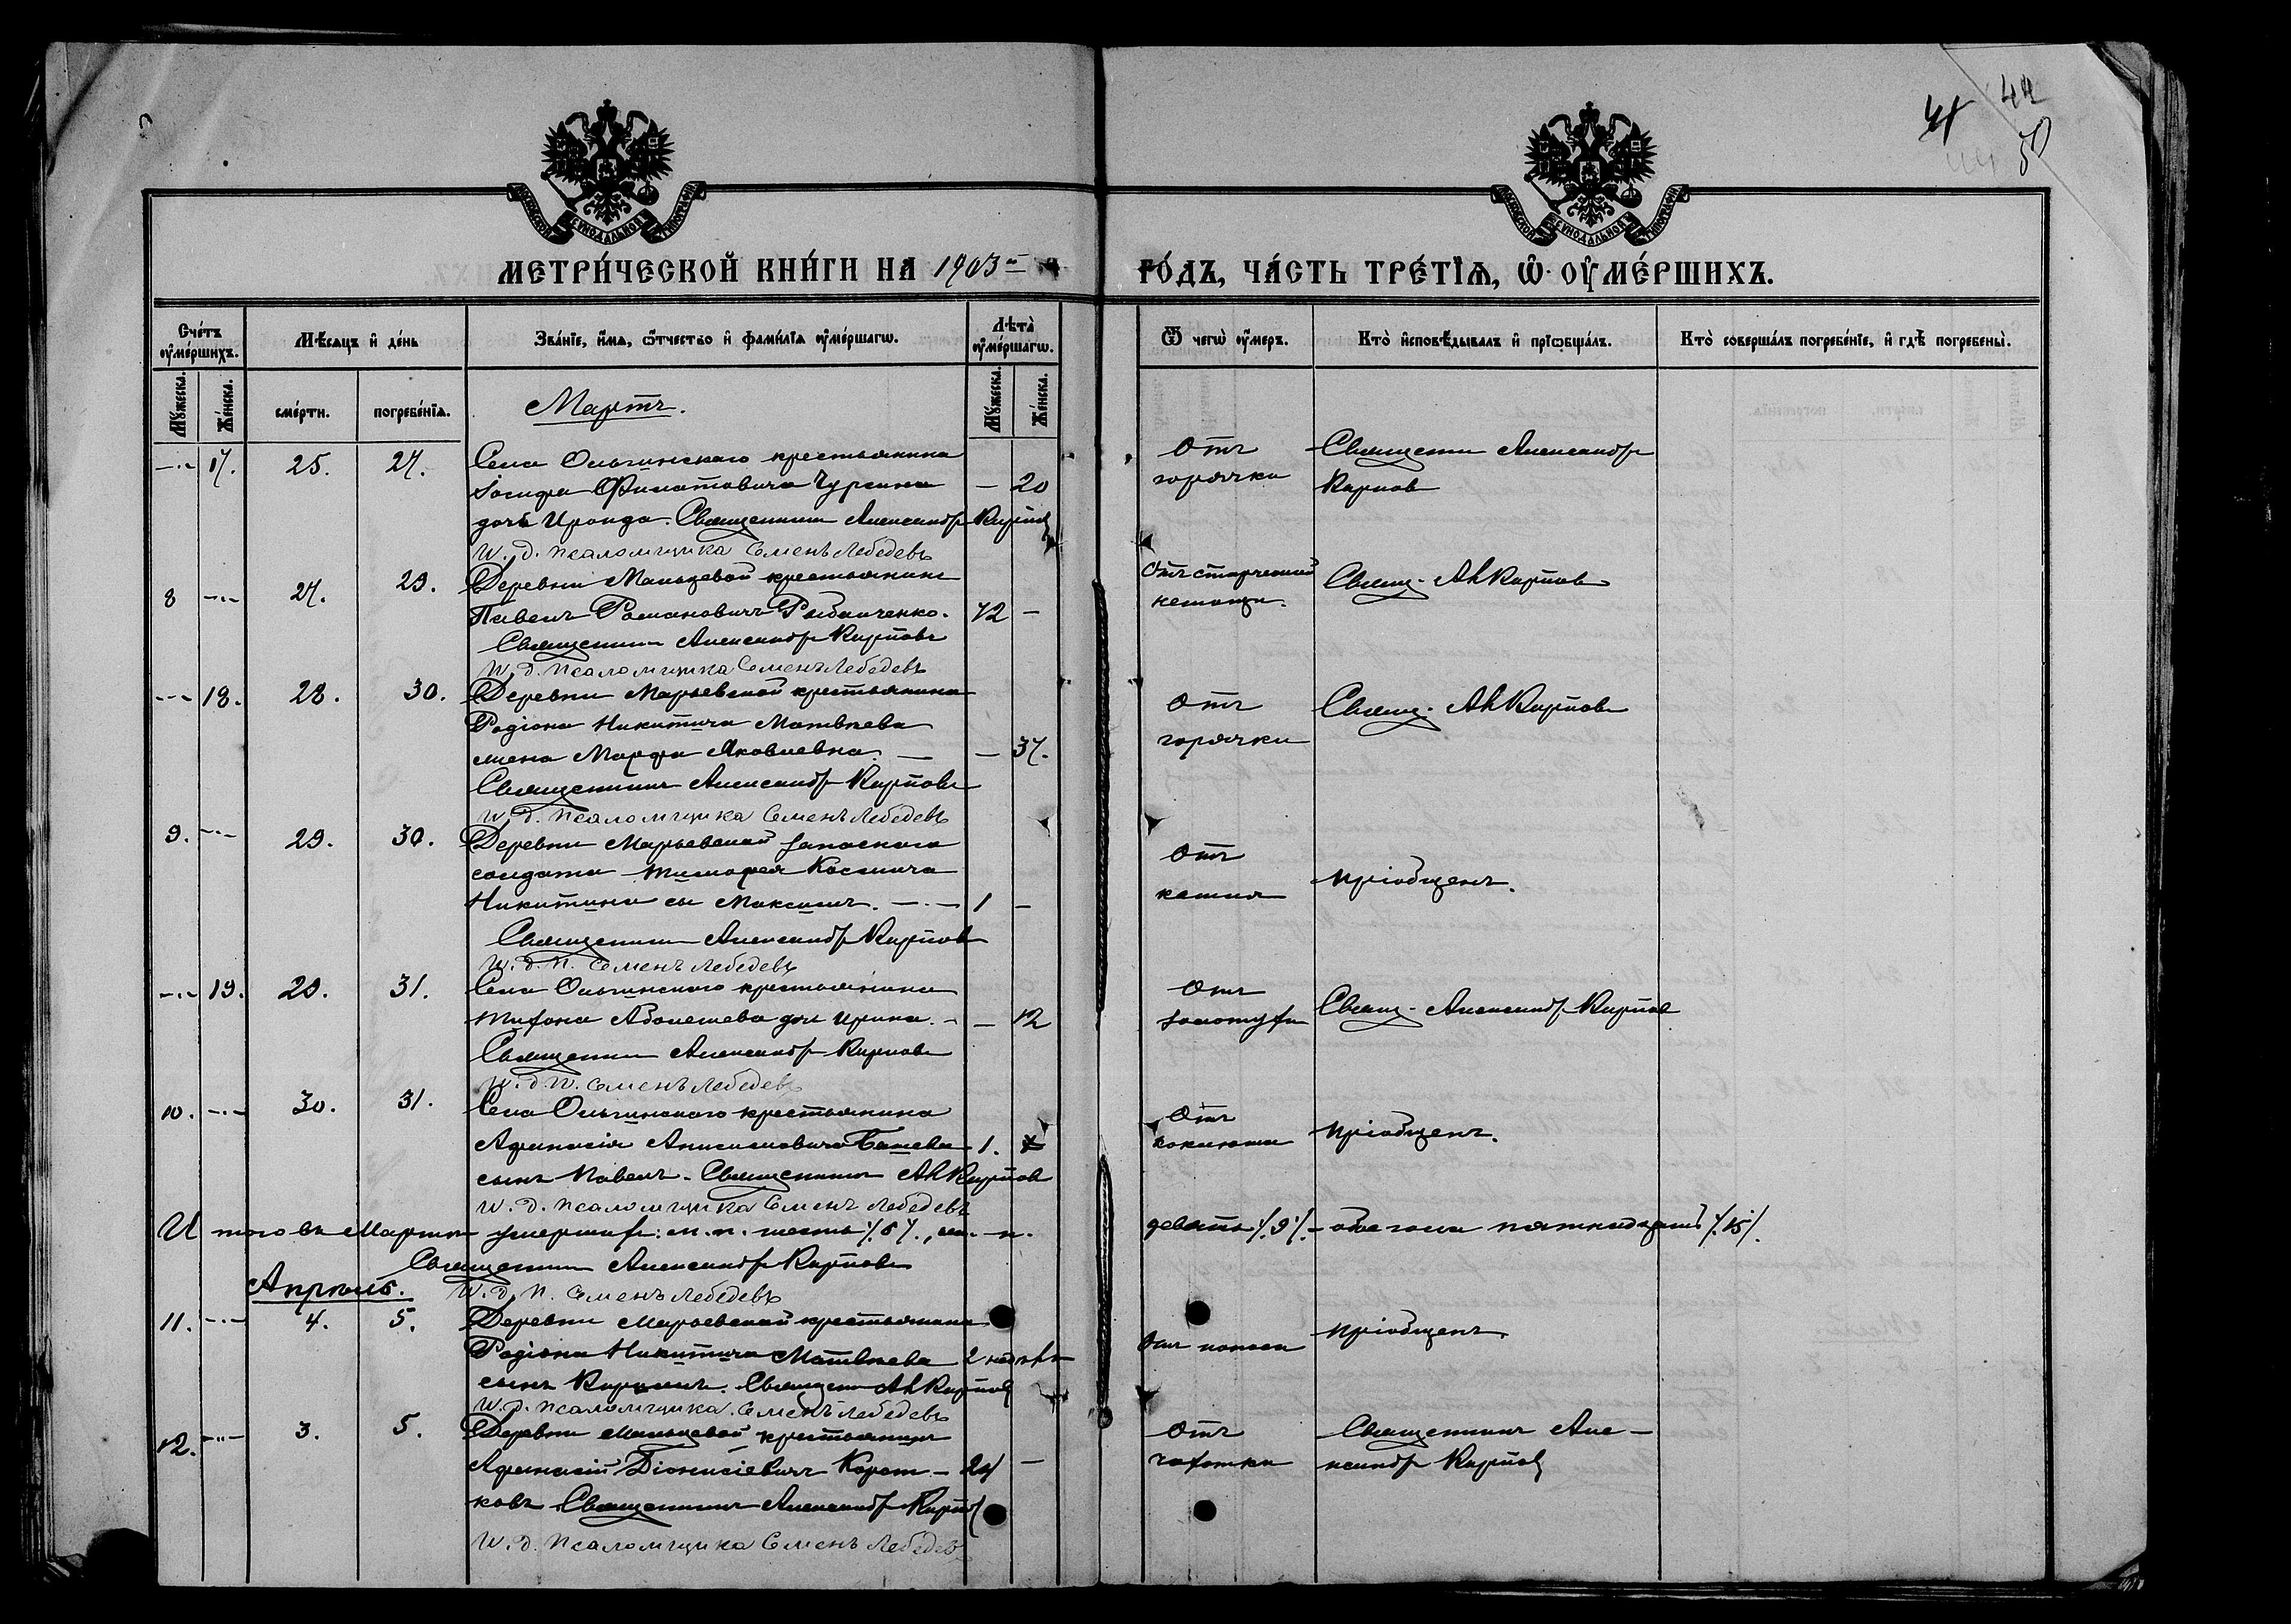 41 44
50
МОСКОВСКОЙ СѴНОДАЛЬНОЙ ТИПОГРАФІИ
МОСКОВСКОЙ СѴНОДАЛЬНОЙ ТИПОГРАФІИ
МЕТРИ́ЧЕСКОЙ КНИ́ГИ НА 1903й ГО́ДЪ, ЧА́СТЬ ТРЕ́ТІѦ, Ѡ ОУ҆МЕ́РШИХЪ.
Сче́тъ оу҆ме́ршихъ.
Мѣ́сяцъ и҆ де́нь
Зва́нїе, и҆́мѧ, ѻ҆́тчество и҆ фами́лїѧ оу҆ме́ршагѡ.
Лѣ́та̀ оу҆ме́ршагѡ.
Ѿ чегѡ̀ оу҆́меръ.
Кто̀ и҆сповѣ́дывалъ и҆ прїѡбща́лъ.
Кто̀ соверша́лъ погребе́нїе, и҆ гдѣ̀ погребены̀.
Мꙋ́жеска. Же́нска. сме́рти. погребе́нїѧ. Мꙋ́жеска. Же́нска.
Мартъ.
17. 25. 27. Села Ольгинскаго крестьянина
Іосифа Филатовича Чурсина — 20
дочь Ираида. Священникъ Александръ Карповъ
И. д. псаломщика Семенъ Лебедевъ
Отъ
горячки
Священникъ Александръ
Карповъ
8 27. 29. Деревни Мальцевой крестьянинъ
Павелъ Романовичъ Рыбальченко. 72 —
Священникъ Александръ Карповъ
И. д. псаломщика Семенъ Лебедевъ
Отъ старческой
немощи.
Свящ. Ал Карповъ
18. 28. 30. Деревни Марьевской крестьянина
Родіона Никитича Матвѣева
жена Марфа Яковлевна. — — 37.
Священникъ Александръ Карповъ
И. д. псаломщика Семенъ Лебедевъ
Отъ
горячки
Свящ. Ал Карповъ
9. 29. 30. Деревни Марьевской запаснаго
солдата Тимофея Косьмича
Никитина сы Максимъ. 1 —
Священникъ Александръ Карповъ
И. д. п. Семенъ Лебедевъ
Отъ
кашля
пріобщенъ.
19. 29. 31. Села Ольгинскаго крестьянина
дочь Ирина. — 12
Священникъ Александръ Карповъ
И. д. п. Семенъ Лебедевъ
Отъ
золотухи
Свящ. Александръ Карповъ
10. 30. 31. Села Ольгинскаго крестьянина
Афанасія Анисимовича 1.
сынъ Павелъ. Священникъ Ал Карповъ
И. д. псаломщика Семенъ Лебедевъ
Отъ
коклюша
пріобщенъ.
Итого въ Мартѣ умершихъ: м. п. шесть /.6/., ж. п. девять /.9/. — обоего пола пятнадцать /.15/.
Священникъ Александръ Карповъ
Апрѣль. И. д. п. Семенъ Лебедевъ
11. 4. 5. Деревни Марьевской крестьянина
Родіона Никитича Матвѣева 2 недѣль
сынъ Кириллъ. Священ Ал Карповъ
И. д. псаломщика Семенъ Лебедевъ
Отъ поноса
пріобщенъ.
12. 3. 5. Деревни Мальцевой крестьянинъ
Афанасій Діонисіевичъ Корот- 24 —
ковъ Священникъ Александръ Карповъ
И. д. псаломщика Семенъ Лебедевъ
Отъ
чахотки
Священникъ Але-
ксандръ Карповъ